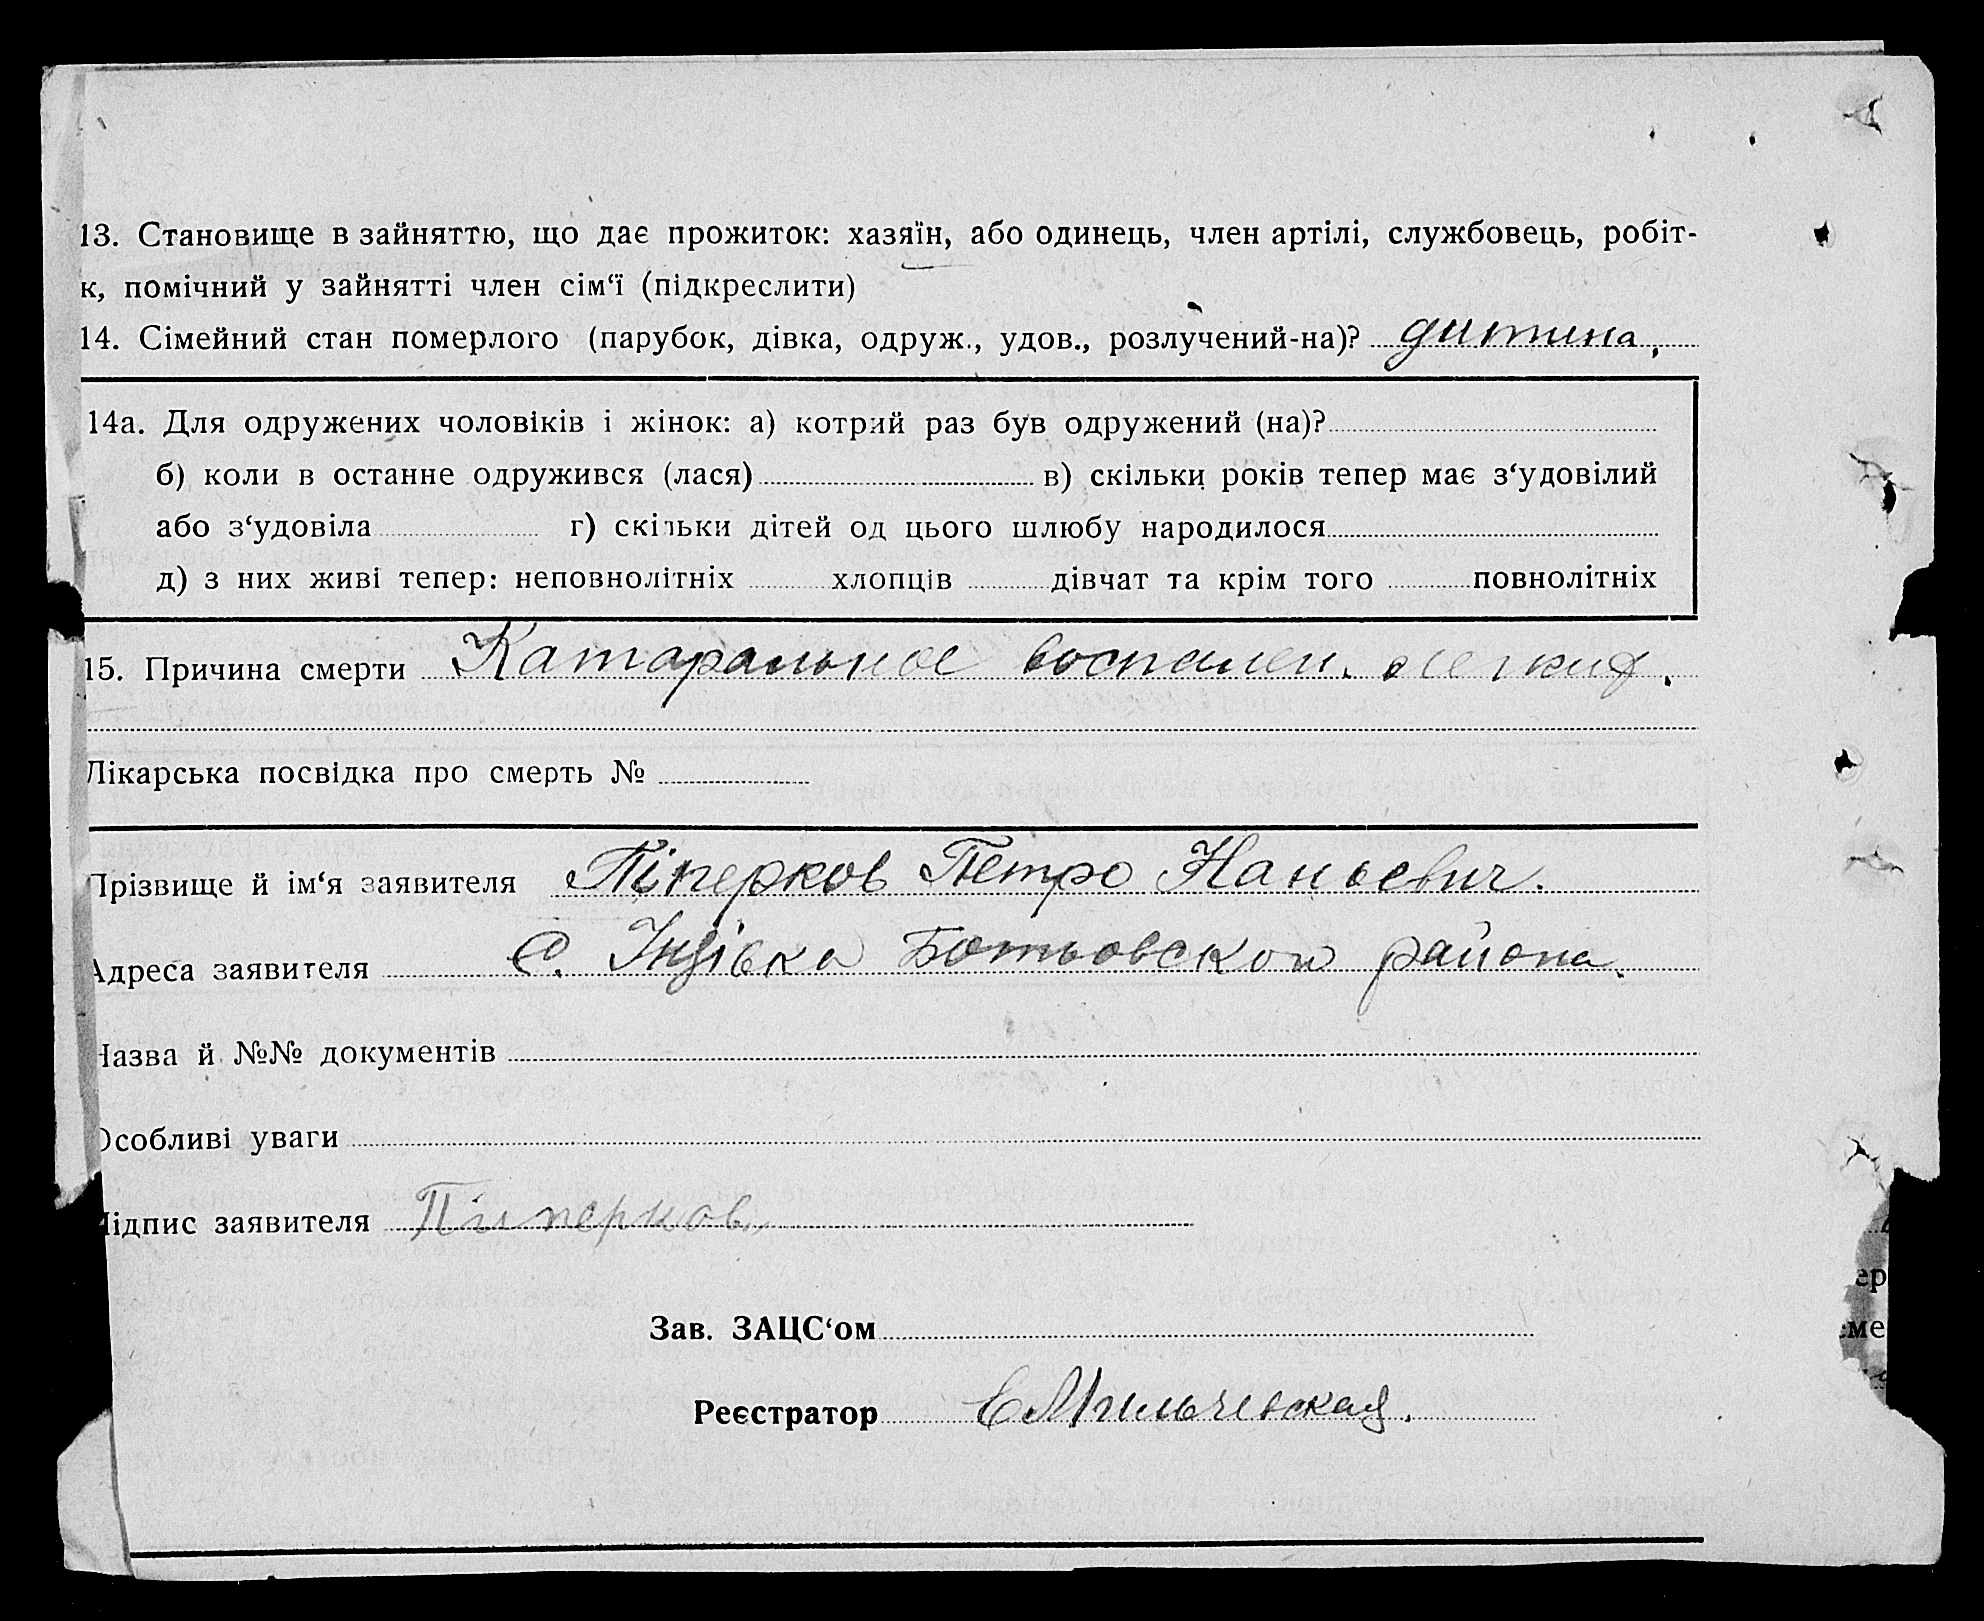 13. Становище в зайняттю, що дає прожиток: хазяїн, або одинець, член артілі, службовець, робіт-
к, помічний у зайнятті член сім‘ї (підкреслити)
14. Сімейний стан померлого (парубок, дівка, одруж., удов., розлучений-на)? дитина,
14а. Для одружених чоловіків і жінок: а) котрий раз був одружений (на)?
б) коли в останне одружився (лася) в) скільки років тепер має з‘удовілий
або з‘удовіла г) скільки дітей од цього шлюбу народилося
д) з них живі тепер: неповнолітніх хлопців дівчат та крім того повнолітніх
15. Причина смерти Катаральное воспален. легких.
Лікарська посвідка про смерть №
Прізвище й ім‘я заявителя Піперков Петро Наньевич.
Адреса заявителя с. Інзівка Ботьовского района.
Назва й №№ документів
Особливі уваги
Підпис заявителя Пиперков
Зав. ЗАЦС‘ом
Реєстратор ЕМильчевская.
ер
ме